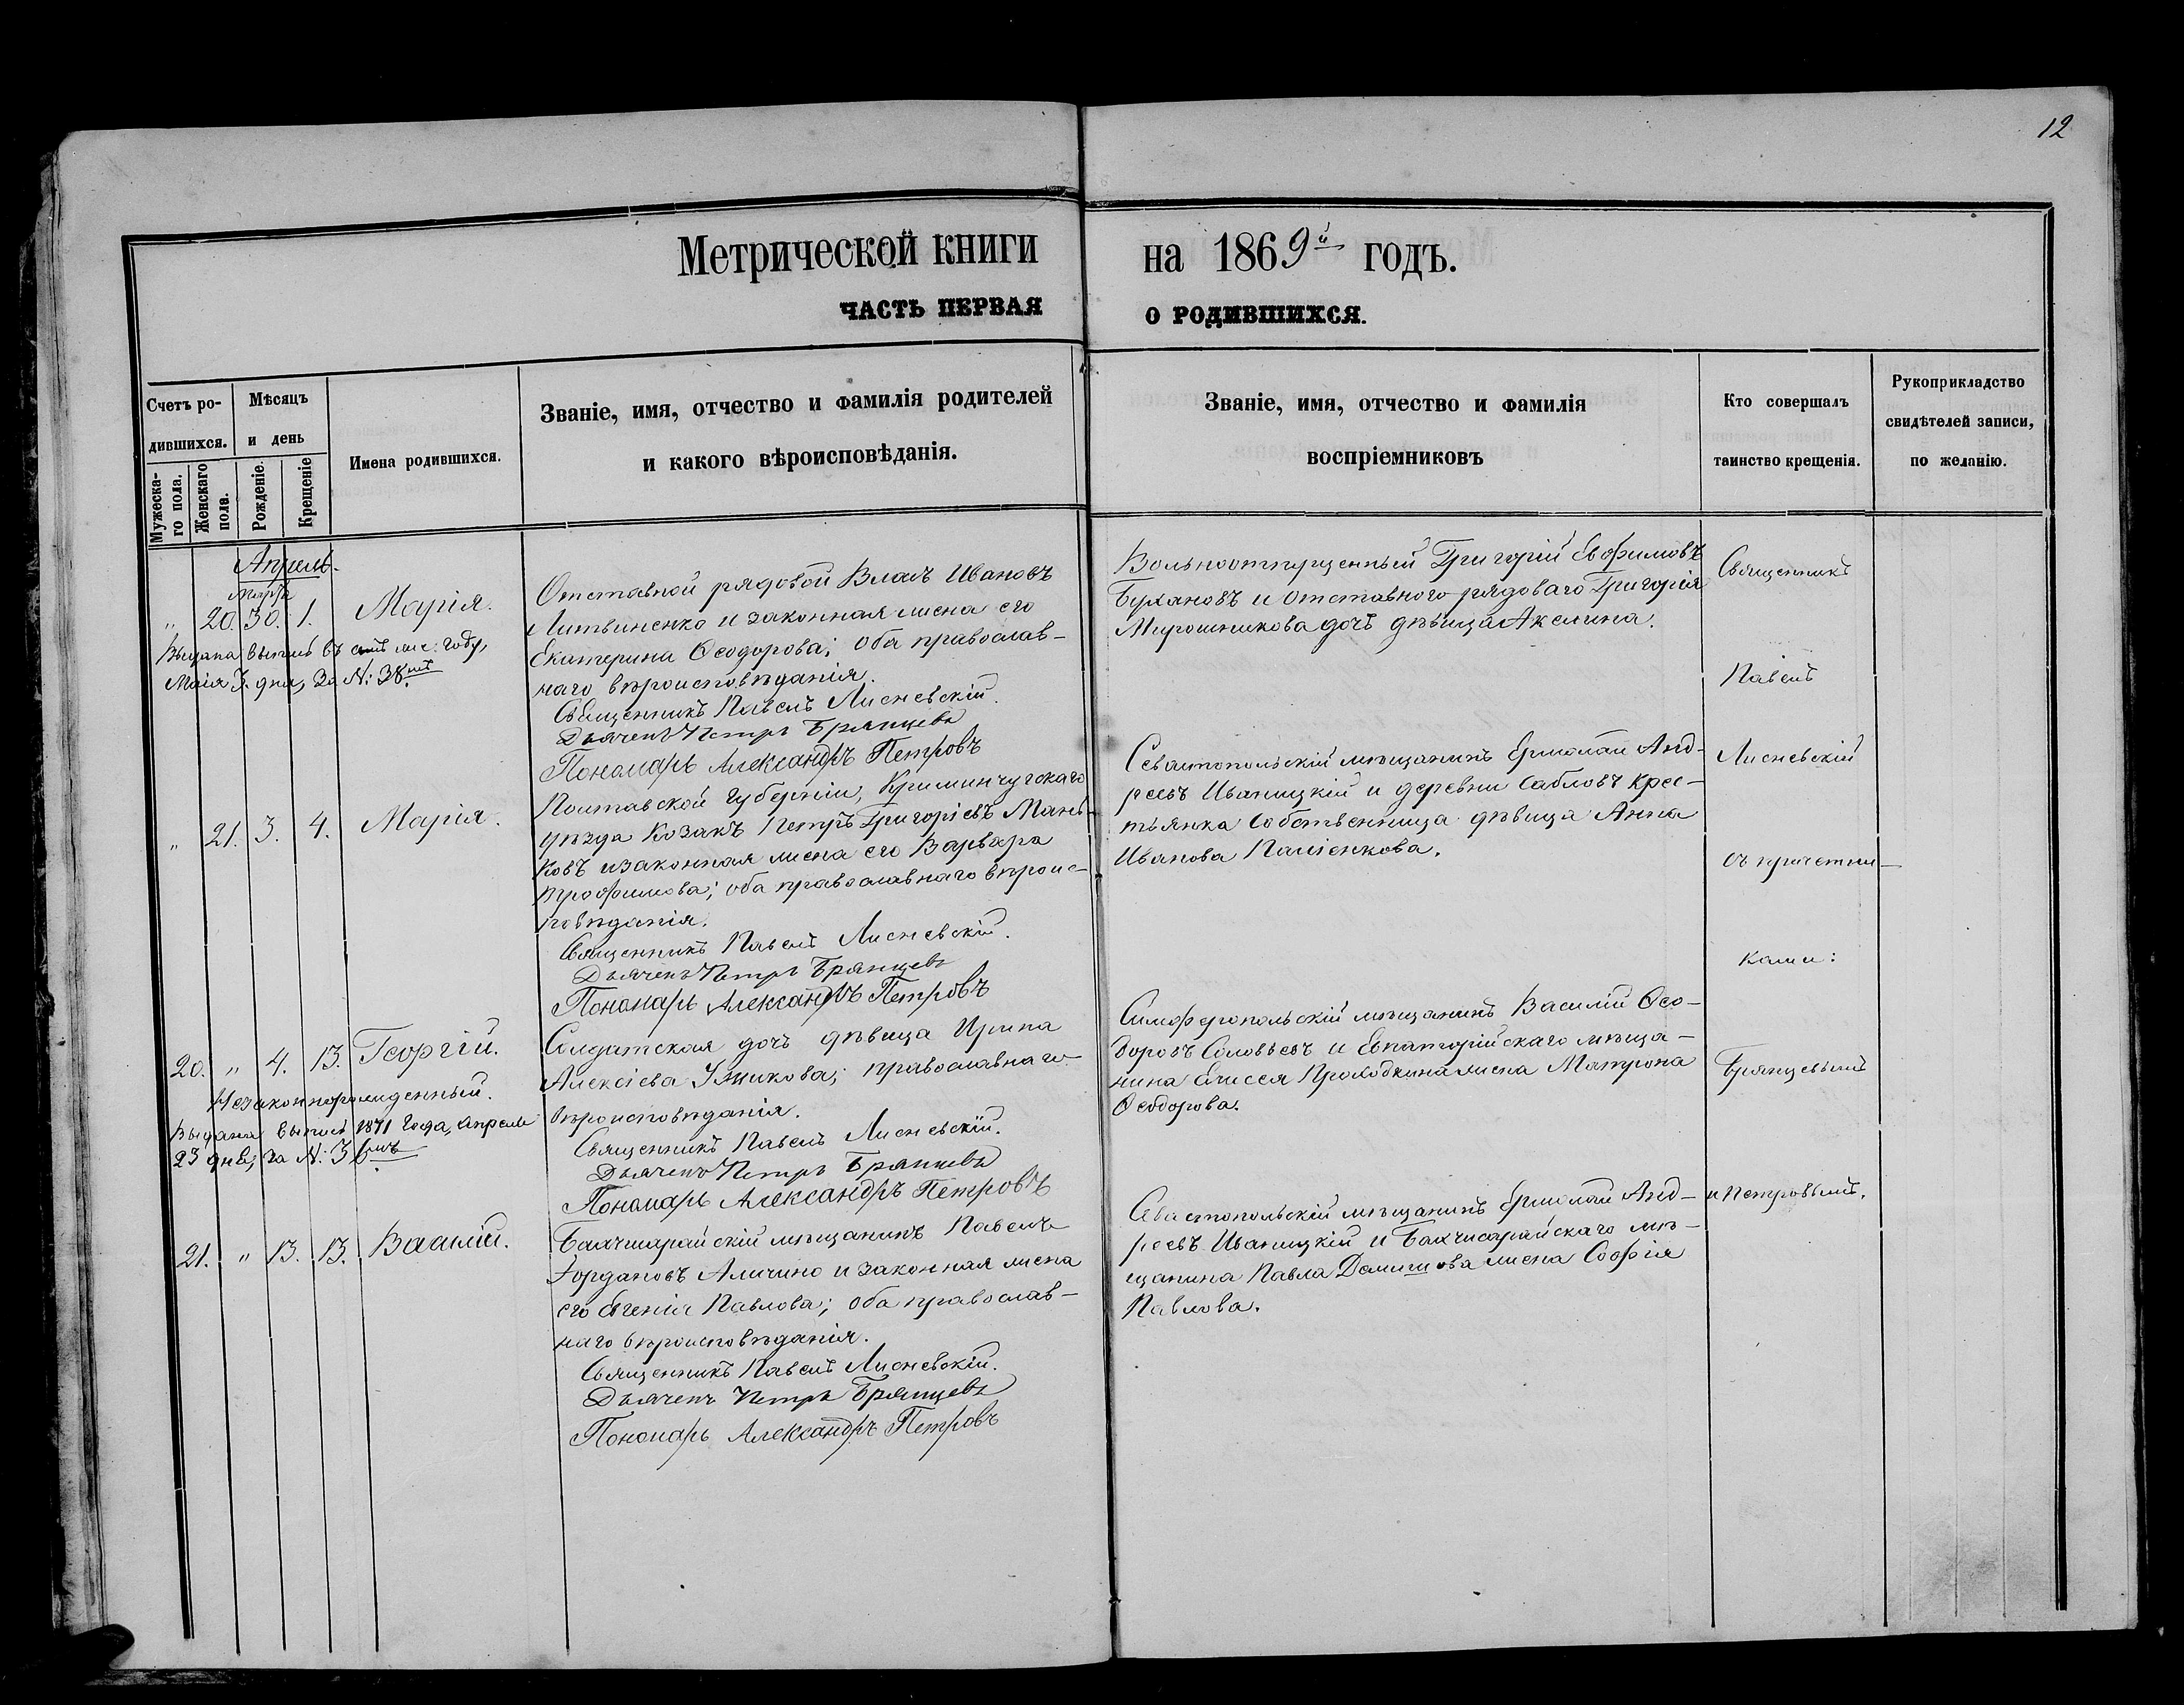 12
Метрической книги на 1869й годъ.
ЧАСТЬ ПЕРВАЯ О РОДИВШИХСЯ.
Счетъ ро-
дившихся.
Мужеска-
го пола.
Женскаго
пола.
Мѣсяцъ
и день
Рожденіе.
Крещеніе
Имена родившихся.
Званіе, имя, отчество и фамилія родителей
и какого вѣроисповѣданія.
Званіе, имя, отчество и фамилія
воспріемниковъ
Кто совершалъ
таинство крещенія.
Рукоприкладство
свидѣтелей записи,
по желанію.
Апрель.
Марта
„ 20. 30. 1. Марія.
Выдана выпись въ семъ же году,
Маія 3. дня, за №: 38мъ
Отставной рядовой Власъ Ивановъ
Литвиненко и законная жена его
Екатерина Ѳеодорова; оба православ-
наго вѣроисповѣданія.
Священникъ Павелъ Лисневскій.
Дьячекъ Петръ Брянцевъ
Пономарь Александръ Петровъ
Вольноотпущенный Григорій Евфимовъ
Бухановъ и отставного рядоваго Григорія
Мирошникова дочь дѣвица Акелина.
„ 21. 3. 4. Марія.
Полтавской губерніи, Криминчугскаго
уѣзда Козакъ Петръ Григорьевъ Мань-
ковъ и законная жена его Варвара
Трофимова; оба православнаго вѣроис-
повѣданія.
Священникъ Павелъ Лисневскій.
Дьячекъ Петръ Брянцевъ
Пономарь Александръ Петровъ
Севастопольскій мѣщанинъ Ермолай Анд-
реевъ Иваницкій и деревни Сабловъ крес-
тьянка собственница дѣвица Анна
Иванова Паліенкова.
20. „ 4. 13. Георгій.
Незаконнорожденный.
Выдана выпись 1871 года, Апреля
23 дня, за №: 36мъ
Солдатская дочь дѣвица Ирина
Алексіева Ужикова; православнаго
вѣроисповѣданія.
Священникъ Павелъ Лисневскій.
Дьячекъ Петръ Брянцевъ
Пономарь Александръ Петровъ
Симферопольскій мѣщанинъ Василій Ѳео-
доровъ Соловьевъ и Евпаторійскаго мѣща-
нина Елисея Проходкина жена Матрона
Ѳеодорова.
21. „ 13. 13. Василій.
Бахчисарайскій мѣщанинъ Павелъ
Іордановъ Аличино и законная жена
его Евгенія Павлова; оба православ-
наго вѣроисповѣданія.
Священникъ Павелъ Лисневскій.
Дьячекъ Петръ Брянцевъ
Пономарь Александръ Петровъ
Севастопольскій мѣщанинъ Ермолай Анд-
реевъ Иваницкій и Бахчисарайскаго мѣ-
щанина Павла жена Софія
Павлова.
Священникъ
Павелъ
Лисневскій
съ причетни-
ками:
Брянцевымъ
и Петровымъ.